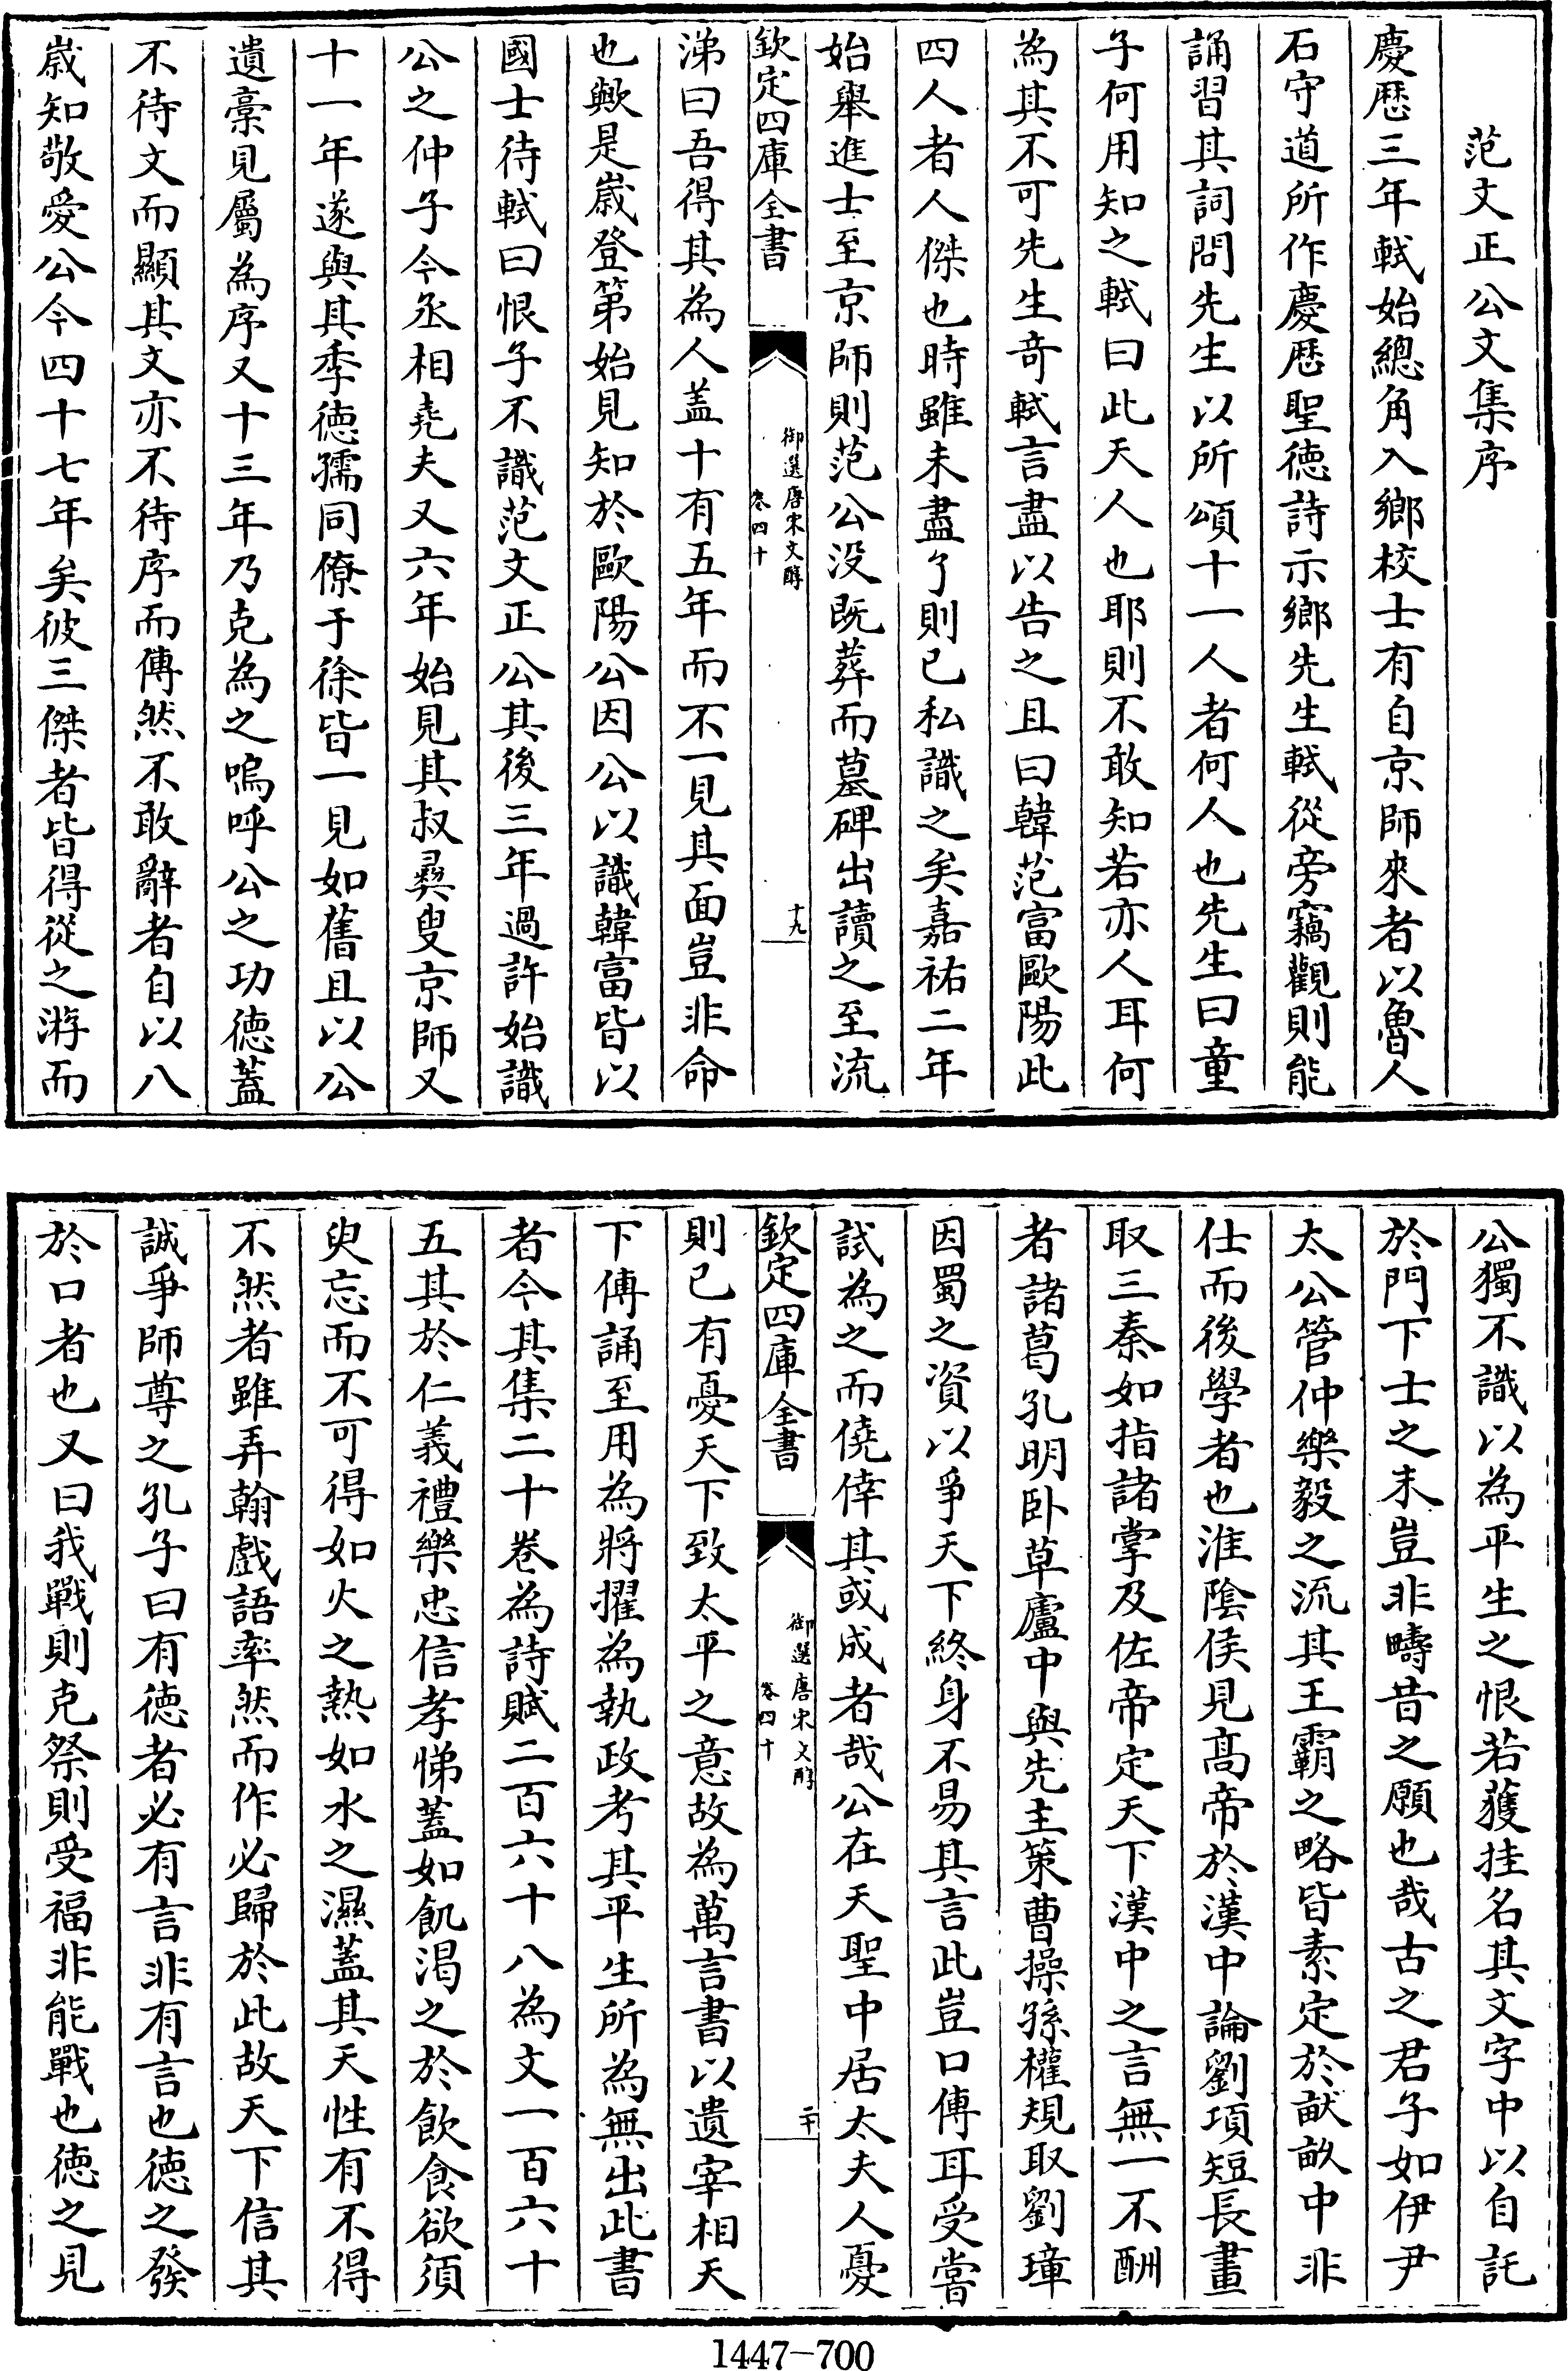 范文正公文集序
慶歷三年軾始總角入鄉校士有自京師來者以魯人
石守道所作慶歷聖徳詩示鄉先生軾從旁竊觀則能
誦習其詞問先生以所頌十一人者何人也先生曰童
子何用知之軾曰此天人也耶則不敢知若亦人耳何
為其不可先生竒軾言盡以告之且曰韓范富歐陽此
四人者人傑也時雖未盡了則已私識之矣嘉祐二年
始舉進士至京師則范公没既葬而墓碑出讀之至流
欽定四庫全書
御選唐宋文醇
卷四十
十九
涕曰吾得其為人蓋十有五年而不一見其面豈非命
也歟是嵗登第始見知於歐陽公因公以識韓富皆以
國士待軾曰恨子不識范文正公其後三年過許始識
公之仲子今丞相堯夫又六年始見其叔彛叟京師又
十一年遂與其季德孺同僚于徐皆一見如舊且以公
遺稾見屬為序又十三年乃克為之嗚呼公之功德蓋
不待文而顯其文亦不待序而傳然不敢辭者自以八
嵗知敬愛公今四十七年矣彼三傑者皆得從之游而
公獨不識以為平生之恨若獲挂名其文字中以自託
於門下士之末豈非疇昔之願也哉古之君子如伊尹
太公管仲樂毅之流其王霸之略皆素定於畎畝中非
仕而後學者也淮陰侯見髙帝於漢中論劉項短長畫
取三秦如指諸掌及佐帝定天下漢中之言無一不酬
者諸葛孔明卧草廬中與先主策曹操孫權規取劉璋
因蜀之資以爭天下終身不易其言此豈口傳耳受嘗
試為之而僥倖其或成者哉公在天聖中居太夫人憂
欽定四庫全書
御選唐宋文醇
卷四十
二十
則已有憂天下致太平之意故為萬言書以遺宰相天
下傳誦至用為將擢為執政考其平生所為無出此書
者今其集二十卷為詩賦二百六十八為文一百六十
五其於仁義禮樂忠信孝悌蓋如飢渴之於飲食欲須
臾忘而不可得如火之熱如水之濕蓋其天性有不得
不然者雖弄翰戲語率然而作必歸於此故天下信其
誠爭師尊之孔子曰有徳者必有言非有言也徳之發
於口者也又曰我戰則克祭則受福非能戰也徳之見
1447-700